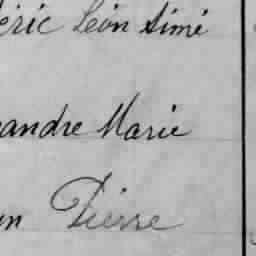 éric Léon Aimé
andre Marie
en Pierre